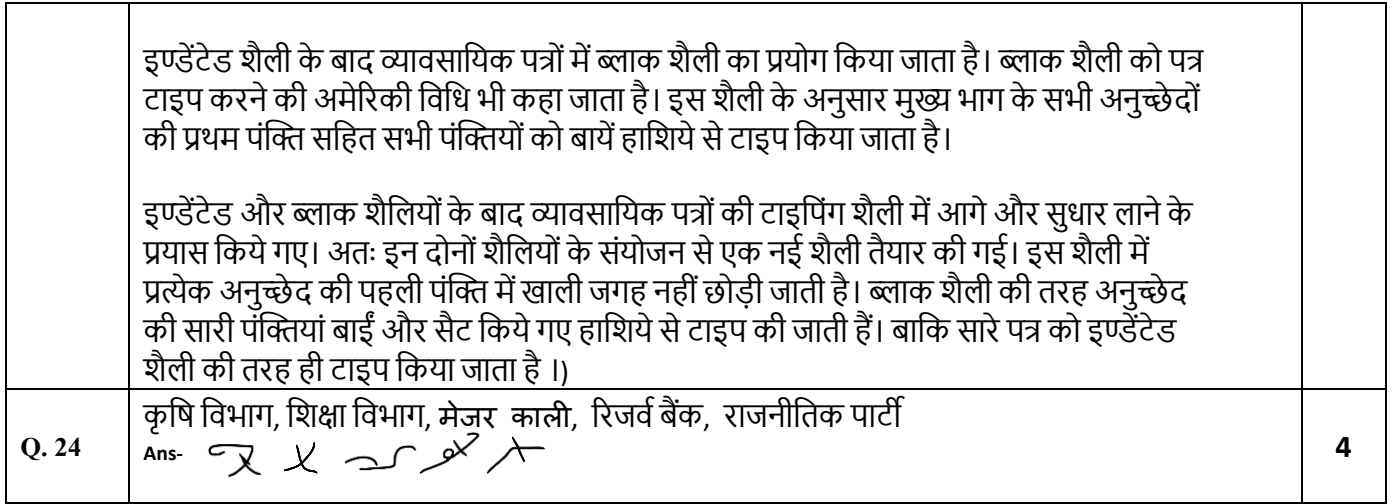 इण्डेंटेड शैली के बाद व्यावसायिक पत्रों में ब्लाक शैली का प्रयोग किया जाता है। ब्लाक शैली को पत्र
टाइप करने की अमेरिकी विधि भी कहा जाता है। इस शैली के अनुसार मुख्य भाग के सभी अनुच्छेदों
की प्रथम पंक्ति सहित सभी पंक्तियों को बायें हाशिये से टाइप किया जाता है।
इण्डेंटेड और ब्लाक शैलियों के बाद व्यावसायिक पत्रों की टाइपिंग शैली में आगे और सुधार लाने के
प्रयास किये गए। अतः इन दोनों शैलियों के संयोजन से एक नई शैली तैयार की गई। इस शैली में
प्रत्येक अनुच्छेद की पहली पंक्ति में खाली जगह नहीं छोड़ी जाती है। ब्लाक शैली की तरह अनुच्छेद
की सारी पंक्तियां बाईं और सैट किये गए हाशिये से टाइप की जाती हैं। बाकि सारे पत्र को इण्डेंटेड
शैली की तरह ही टाइप किया जाता है ।)
कृषि विभाग, शिक्षा विभाग, मेजर काली, रिजर्व बैंक, राजनीतिक पार्टी
Q. 24
Ans-
4